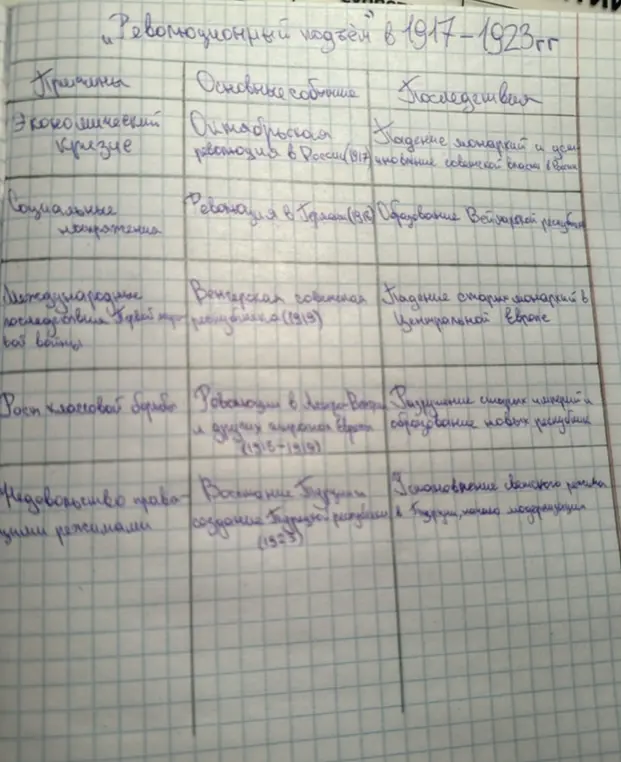 „Революционный подъём" в 1917–1923гг
Причины
Основные события
Последствия
Экономический
кризис
Октябрьская
революция в России (1917)
Падение монархий и уста
новление советской власти в
Социальные
напряжения
Революция в (1918)
Образование Веймарской республики
Международные
последствия Первой миро
вой войны
Венгерская советская
республика (1919)
Падение старых монархий в
Центральной Европе
Рост классовой борьбы
Революции в Австро-Венгрии
и других странах Европы
(1918-1919)
Разрушение старых империй и
образование новых республик
Недовольство правя-
щими режимами
Восстание Турции и
создание Турецкой республики
(1923)
Установление светского режима
в Турции, начало модернизации